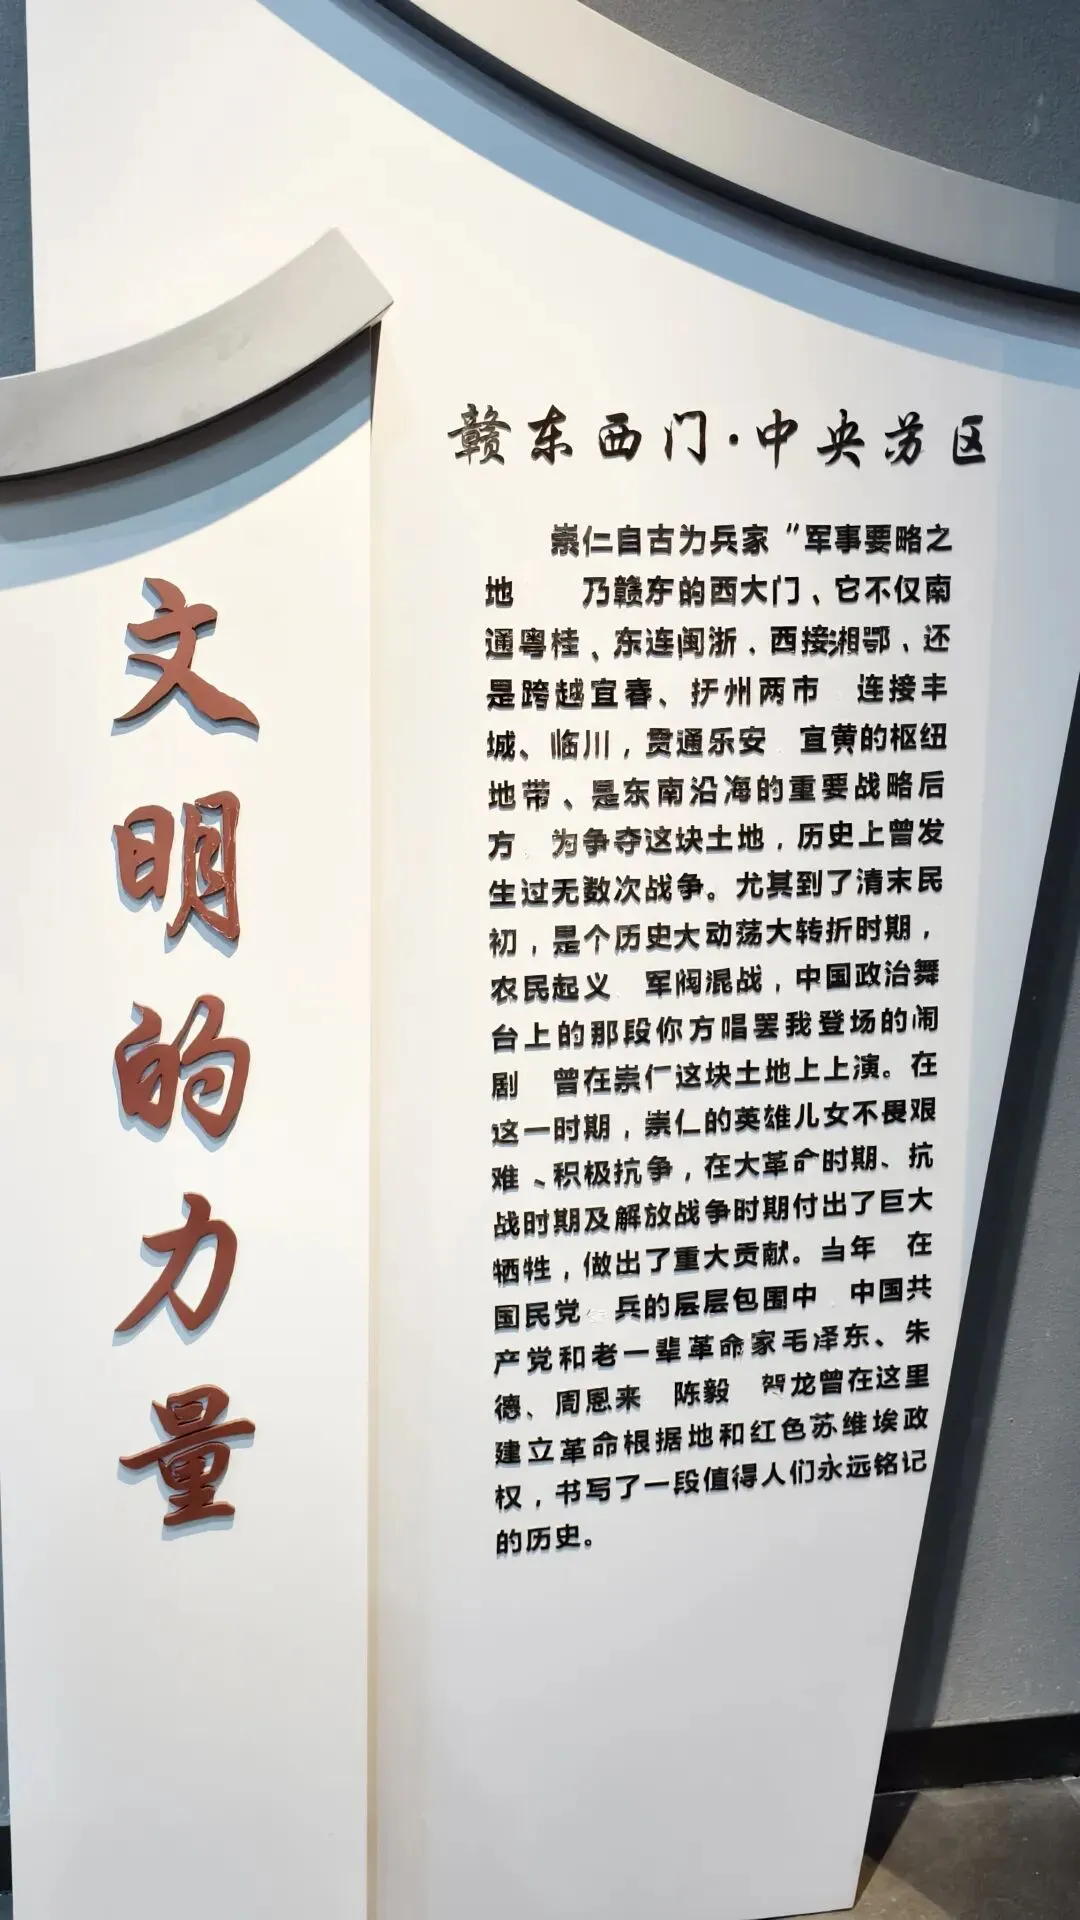 文明的力量
赣东西门·中央苏区
崇仁自古为兵家“军事要略之
地 乃赣东的西大门、它不仅南
通粤桂、东连闽浙、西接湘鄂、还
是跨越宜春、抚州两市 连接丰
城、临川，贯通乐安 宜黄的枢纽
地带、是东南沿海的重要战略后
方 为争夺这块土地，历史上曾发
生过无数次战争。尤其到了清末民
初，是个历史大动荡大转折时期，
农民起义 军阀混战，中国政治舞
台上的那段你方唱罢我登场的闹
剧 曾在崇仁这块土地上上演。在
这一时期，崇仁的英雄儿女不畏艰
难、积极抗争，在大革命时期、抗
战时期及解放战争时期付出了巨大
牺牲，做出了重大贡献。当年 在
国民党 兵的层层包围中 中国共
产党和老一辈革命家毛泽东、朱
德、周恩来 陈毅 贺龙曾在这里
建立革命根据地和红色苏维埃政
权，书写了一段值得人们永远铭记
的历史。